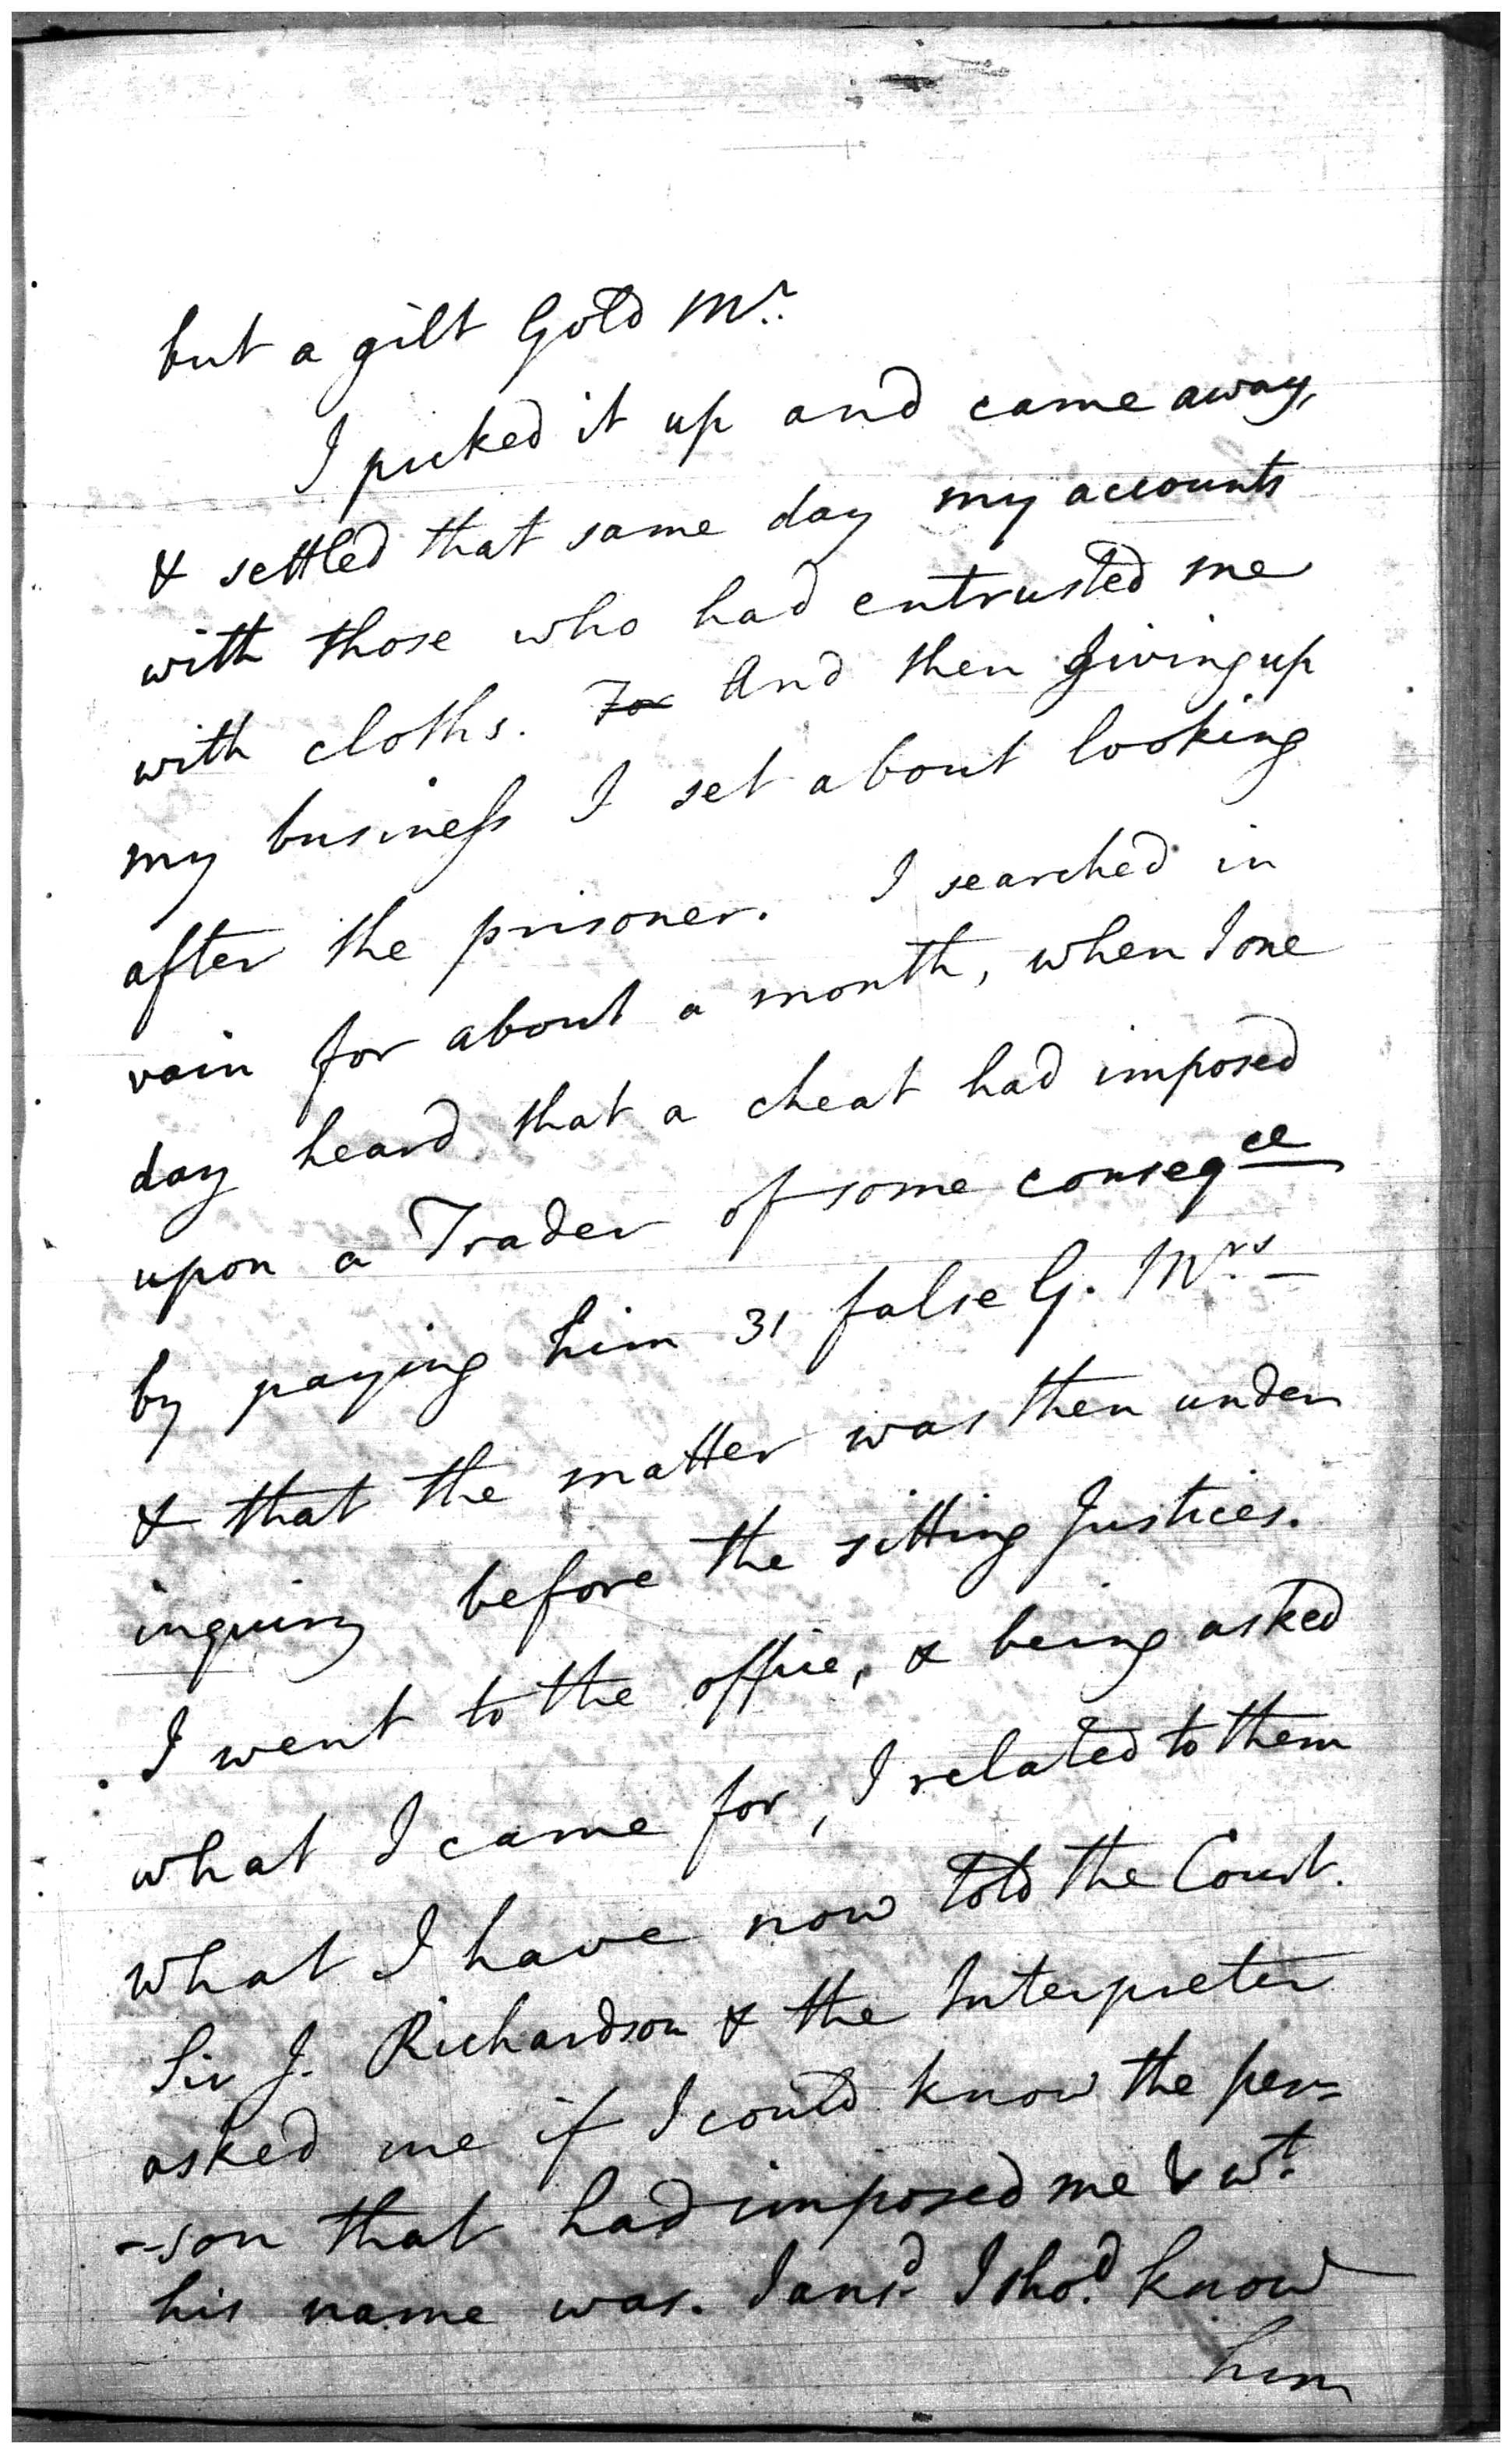 but a gilt Gold Mr.
I picked it up and came away,
& settled that same day my accounts
with those who had entrusted me
with cloths. For And then giving up
my business I set about looking
after the prisoner. I searched in
vain for about a month, when I one
day heard that a cheat had imposed
upon a Trader of some conseqce
by paying him 31 false G. Mrs
& that the matter was then under
inquiry before the sitting Justices.
I went to the office, & being asked
what I came for, I related to them
what I have now told the Court.
Sir J. Richardson & the Interpreter
asked me if I could know the per=
-son that had imposed me & wt.
his name was. I ansd. I shod. know
him